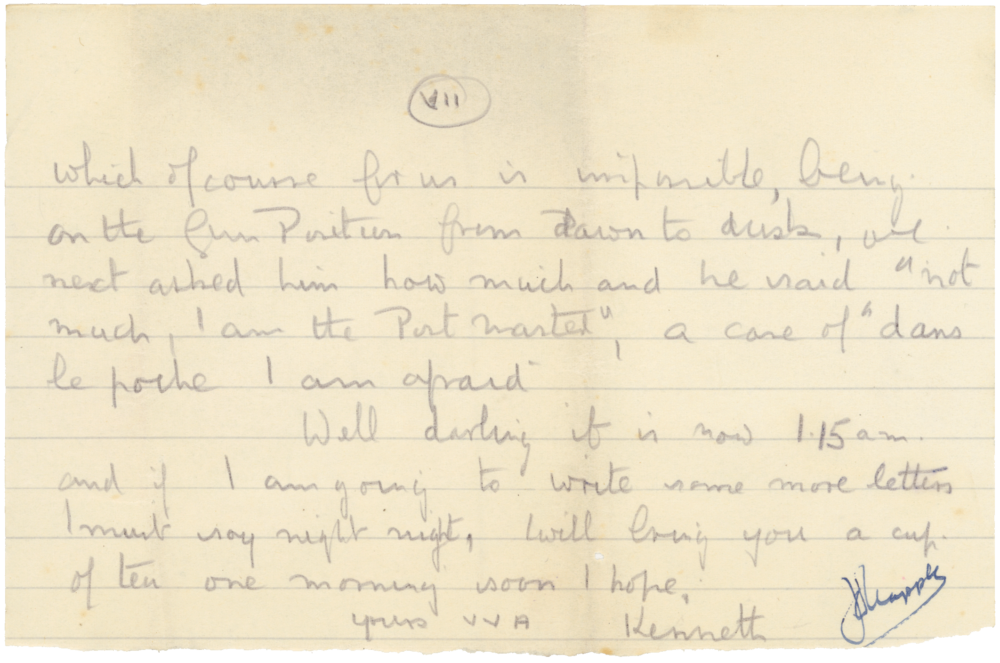 VII
which of course for us is impossible, being
on the Gun Position from Dawn to dusk, we
next asked him how much and he said "not
much, I am the Post Master", a case of "dans
le poche I am afraid"
Well darling it is now 1.15 am.
and if I am going to write some more letters
I must say night night, I will bring you a cup
of tea one morning soon I hope.
yours VVA Kenneth